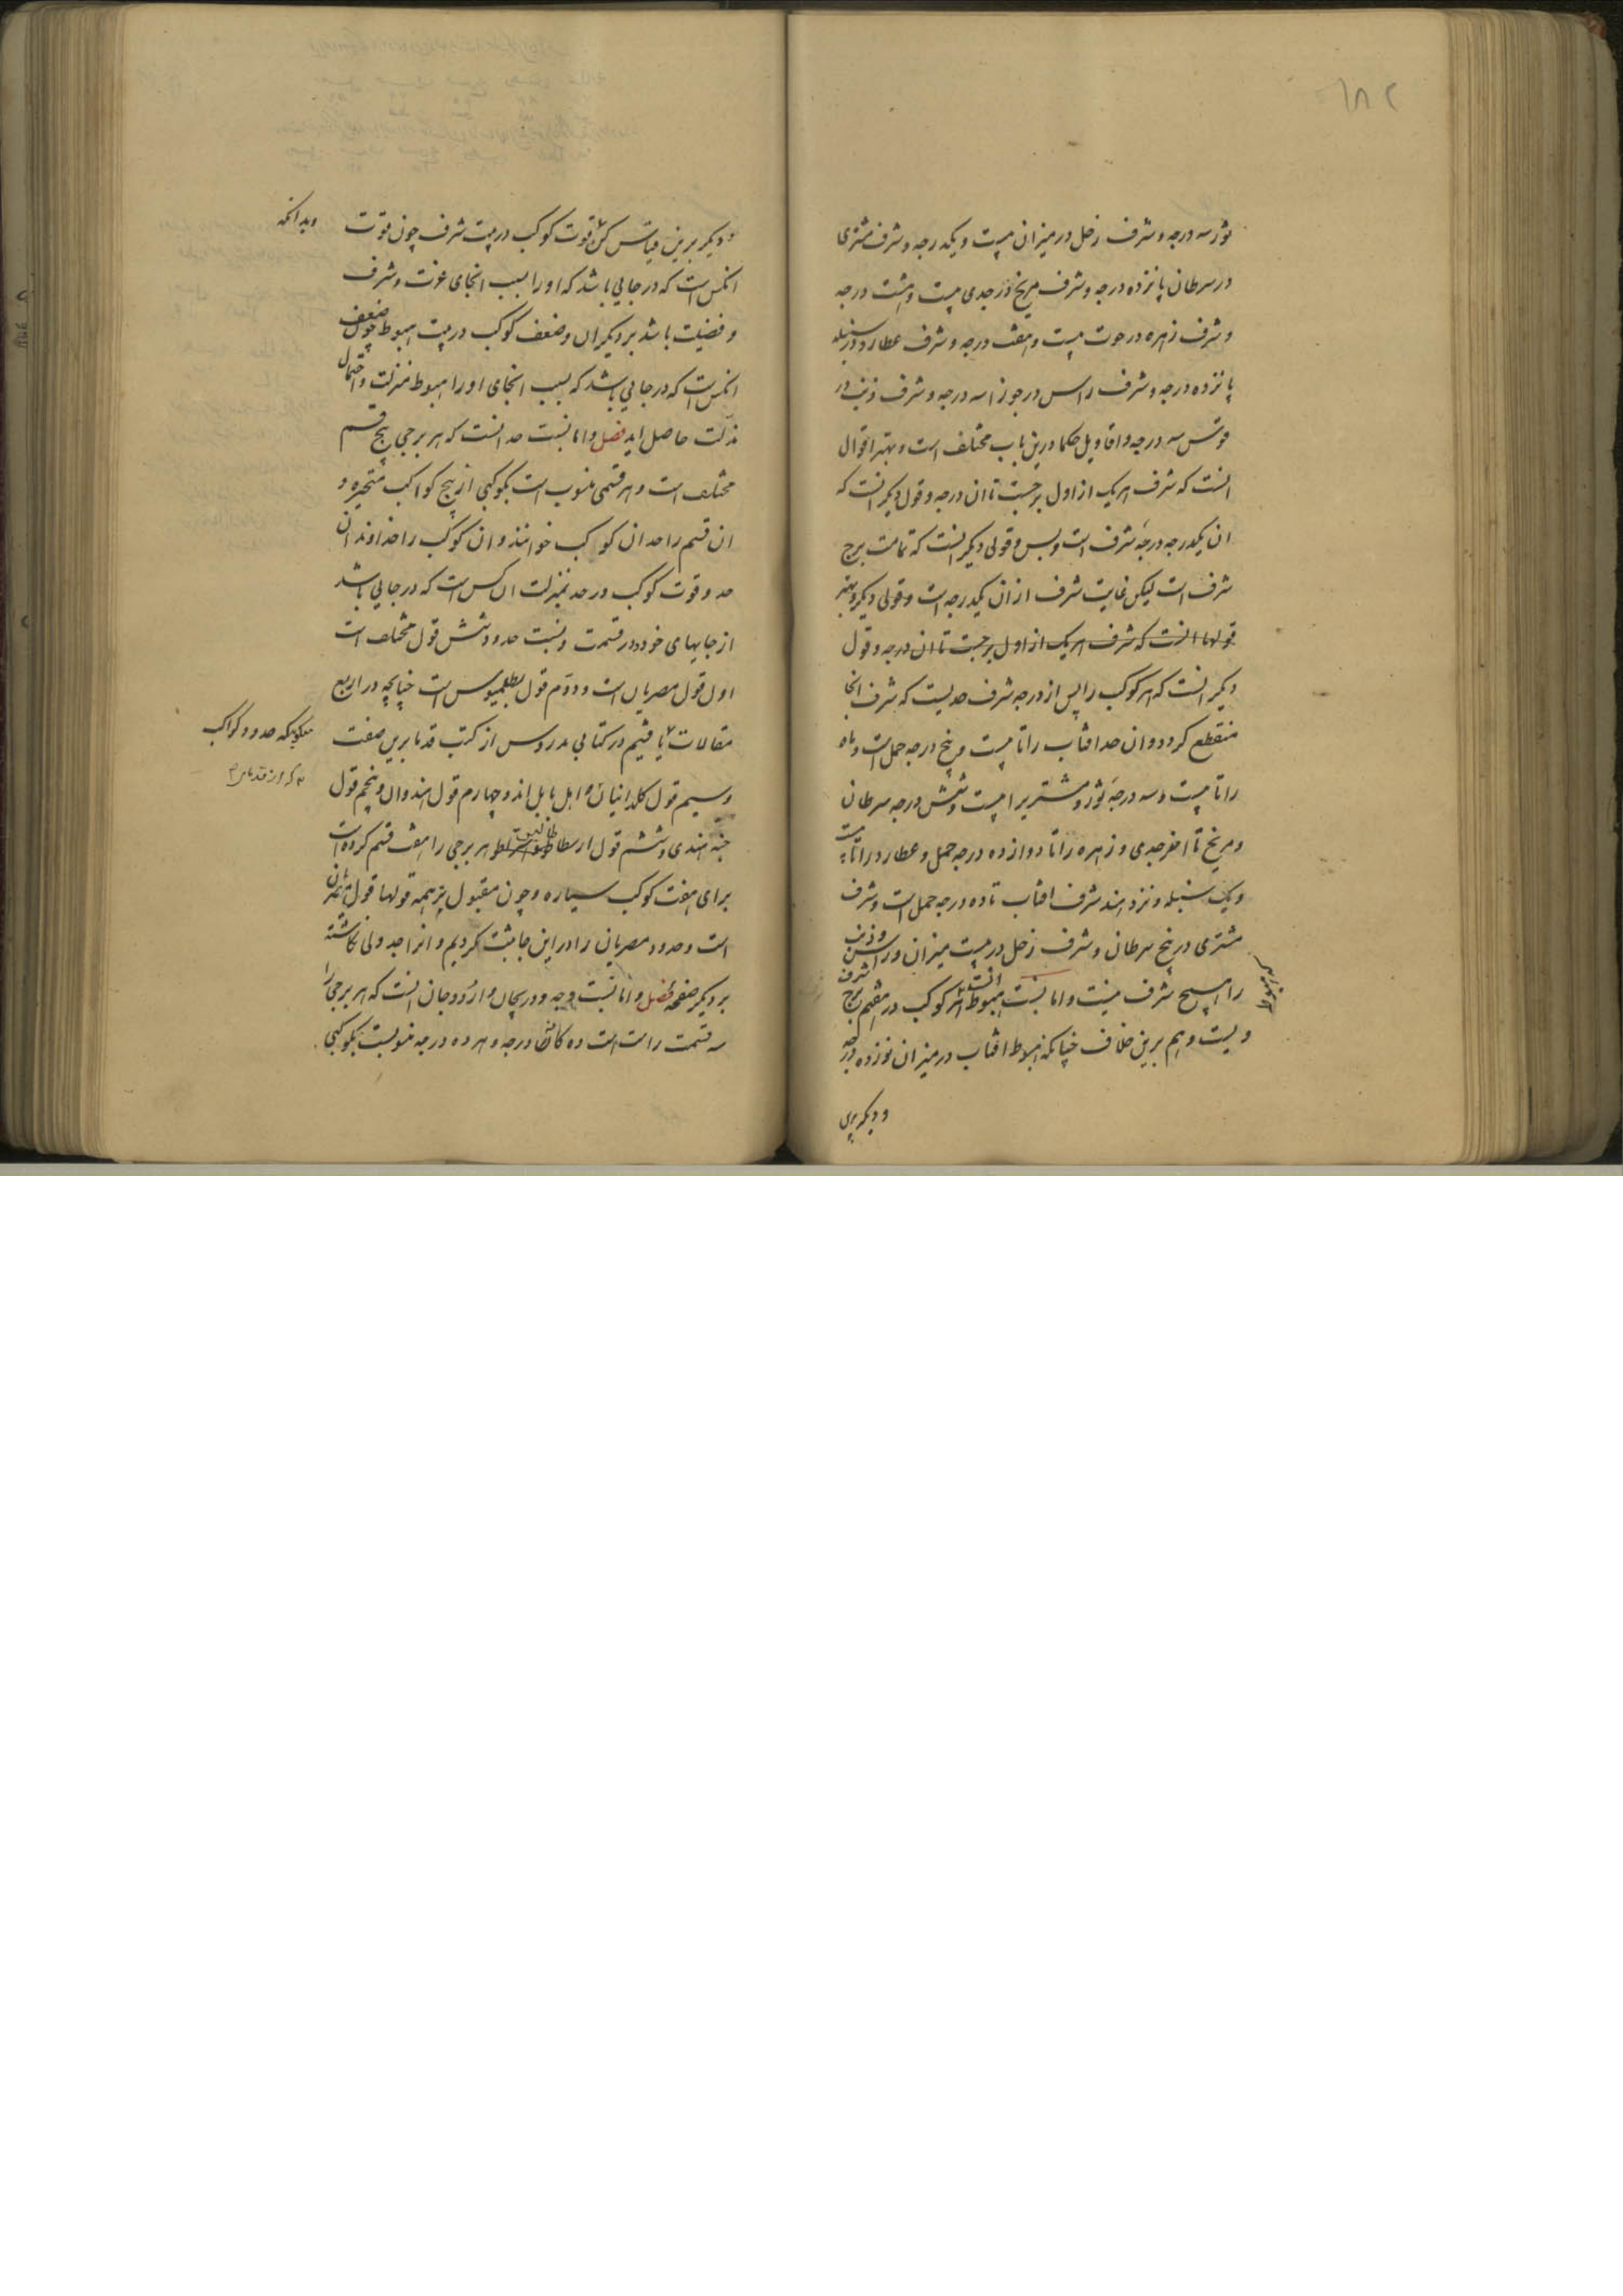 ۱۸۲
ثور سه درجه و شرف زحل در میزان بیست و یکدرجه و شرف مشتری
در سرطان پانزده درجه و شرف مریخ در جدی بیست و هشت درجه
و شرف زهره در حوت بیست و هفت درجه و شرف عطارد در سنبله
پانزده درجه و شرف راس در جوزا سه درجه و شرف ذنب در
قوس سه درجه و اقاویل حکما درین باب مختلف است و بهتر اقوال
انست که شرف هریک از اول برجست تا ان درجه و قول دیکر انست که
ان یکدرجه درجهٔ شرف است و بس و قولی دیکر انست که تمامت برج
شرف است لیکن غایت شرف از ان یکدرجه است و قولی دیکر و بهتر
قولها انست که شرف هریک از اول برجست تا ان درجه و قول
دیکر انست که هر کوکب را پس از درجه شرف حدیست که شرف انجا
منقطع کردد و ان حد افتاب را تا بیست و پنج درجه حمل است و ماه
را تا بیست و سه درجهٔ ثور و مشتریرا بیست و شش درجه سرطان
و مریخ تا اخر جدی و زهره را تا دوازده درجه حمل و عطارد را تا بیست
و یک سنبله و نزد هند شرف افتاب تا ده درجه حمل است و شرف
مشتری در پنج سرطان و شرف زحل در بیست میزان و راس و ذنب
را هیچ شرف نیست و اما نسبت هبوط انست هر کوکب در هفتم برج شرف
که هبوط
ویست و هم برین خلاف چنانکه هبوط افتاب در میزان نوزده درجه
و دیکر برین
و دیکر برین قیاس کن و قوت کوکب در بیت شرف چون قوت
وبدانکه
انکس است که در جایی باشد که او را بسبب انجای عزت و شرف
و فضیلت باشد بر دیکران و ضعف کوکب در بیت هبوط چون ضعف
انکس است که در جایی باشد که بسبب انجای او را هبوط منزلت و احتمال
مذلت حاصل اید فصل و اما نسبت حد انست که هر برجی پنج قسم
مختلف است و هر قسمی منسوب است بکوکبی از پنج کواکب متحیره و
ان قسم را حد ان کوکب خوانند و ان کوکب را خداوند ان
حد و قوت کوکب در حد بمنزلت ان کس است که در جایی باشد
از جایهای خود و در قسمت و نسبت حدود شش قول مختلف است
اول قول مصریان است و دوم قول بطلمیوس است چنانچه در اربع
مقالات یافتیم در کتابی مدروس از کتب قدما برین صفت
میکوید که حدود کواکب
که از قدما
و سیم قول کلدانیان و اهل بابل اند و چهارم قول هندوان و پنجم قول
جنه هندی و ششم قول ارسطاطالیس و او هر برجی را هفت قسم کرده است
برای هفت کوکب سیاره و چون مقبول تر همه قولها قول مصریان
است و حدود مصریان را در این جا ثبت کردیم و انرا جدولی نکاشته
بر دیکر صفحه فصل و اما نسبت وجه و دریجان و اردوجان انست که هر برجی را
سه قسمت راست است ده کان درجه و هر ده درجه منسوبست بکوکبی